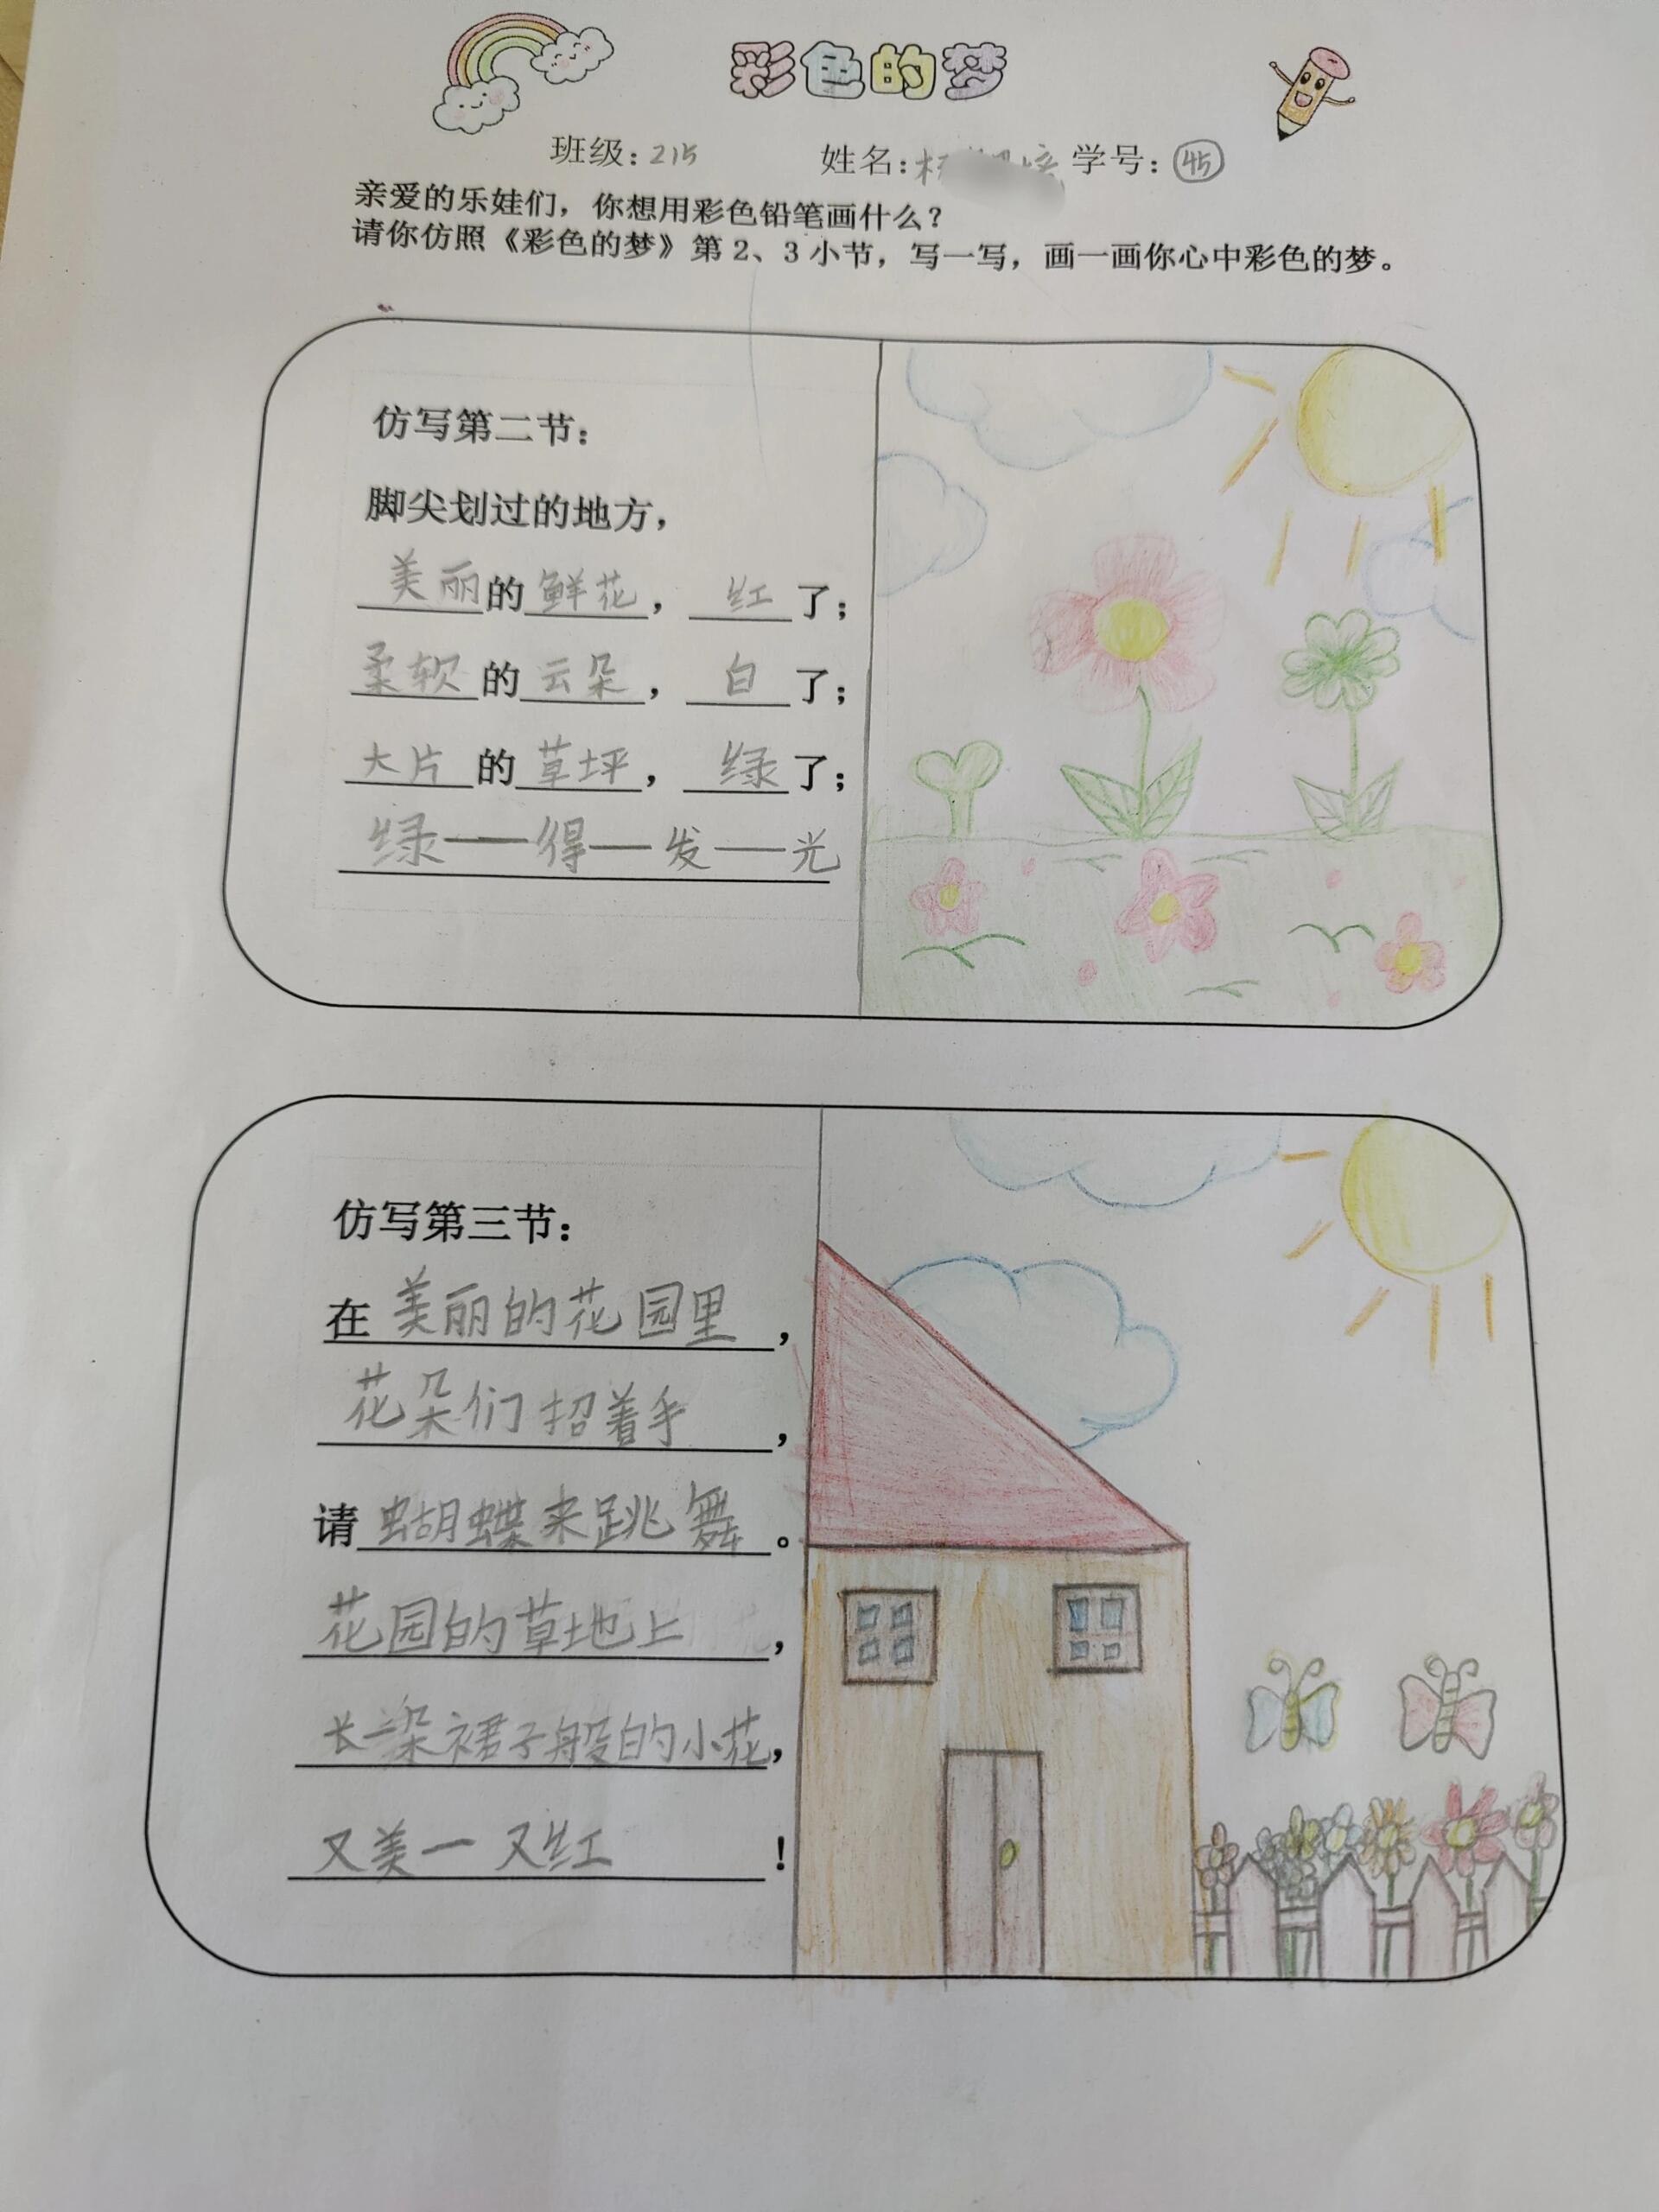 彩色的梦
班级：215 姓名： 学号：45
亲爱的乐娃们，你想用彩色铅笔画什么？
请你仿照《彩色的梦》第2、3小节，写一写，画一画你心中彩色的梦。
仿写第二节：
脚尖划过的地方，
美丽的鲜花，红了；
柔软的云朵，白了；
大片的草坪，绿了；
绿——得—发—光
仿写第三节：
在美丽的花园里，
花朵们招着手，
请蝴蝶来跳舞。
花园的草地上，
长一朵裙子般的小花，
又美一又红！